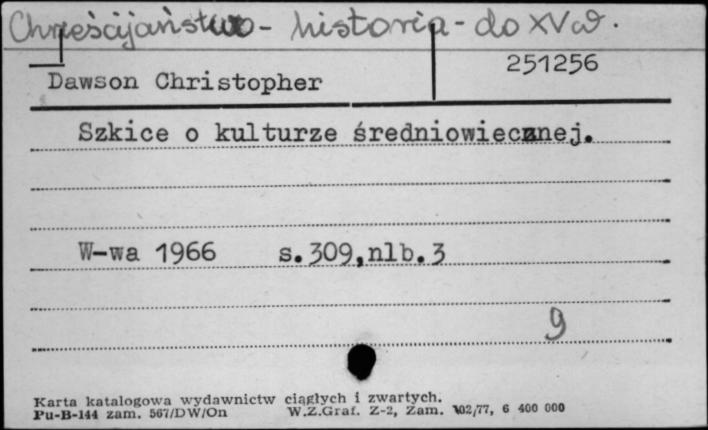 Chrześcijaństwo - historia - do XV w.
251256
Dawson Christopher
Szkice o kulturze średniowiecznej.
W-wa 1966 s.309,nlb.3
9
Karta katalogowa wydawnictw ciągłych i zwartych.
Pu-B-144 zam. 567/DW/On W.Z.Graf. Z-2, Zam. 102/77, 6 400 000